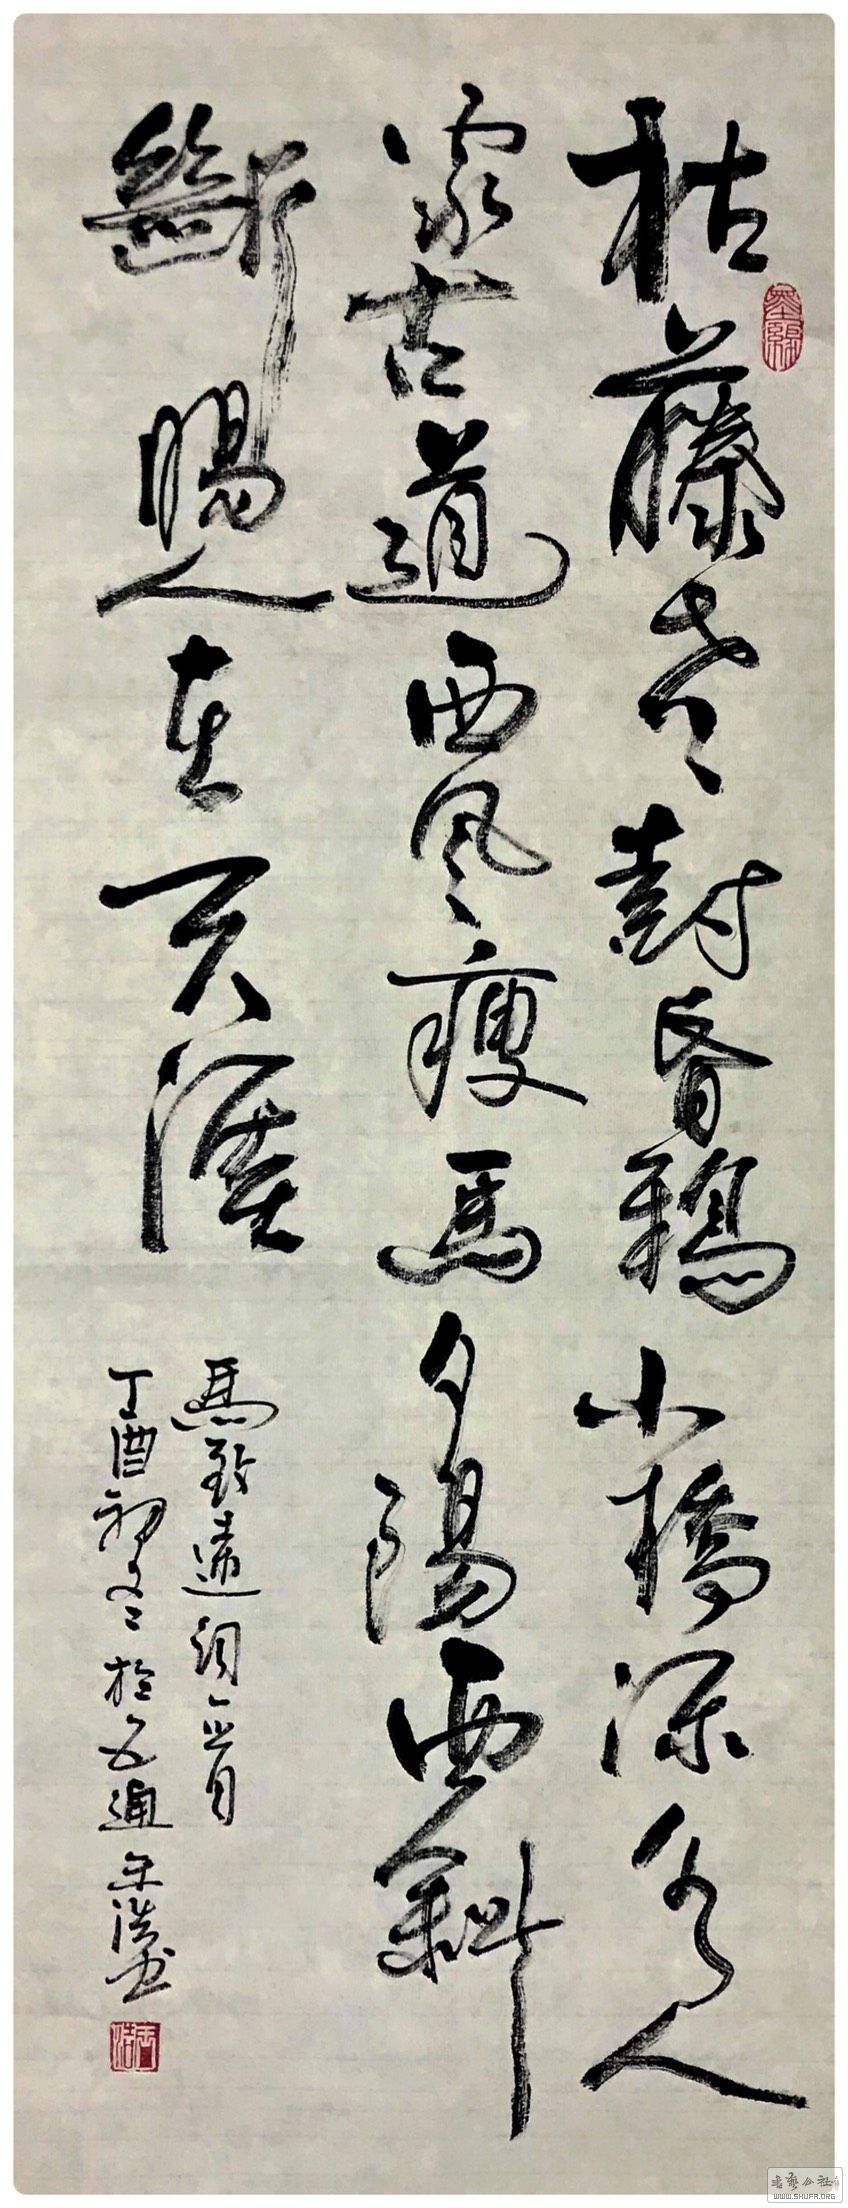 枯藤老樹昏鴉小橋深處人
家古道西風瘦馬夕陽西斜
斷腸人在天涯
馬致遠詞一首
丁酉初冬於五通王浩書
墨緣
王浩
書藝公社
WWW.SHUFA.ORG